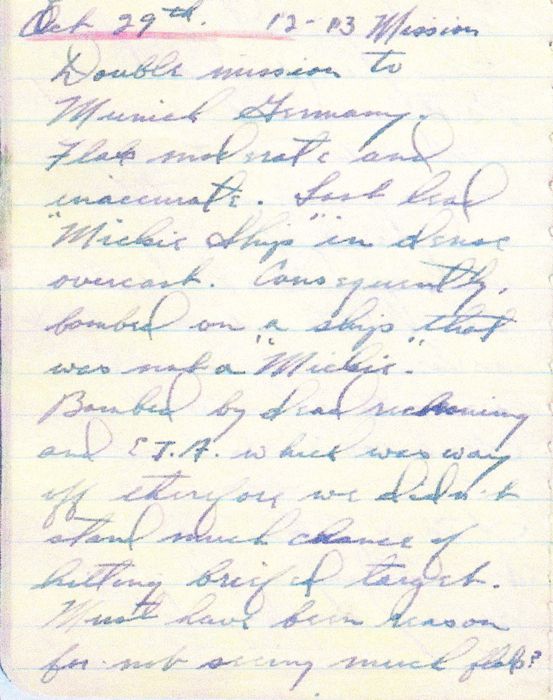 Oct 29th. 12-13 Mission
Double mission to
Munich Germany.
Flak moderate and
inaccurate. Lost lead
"Mickie Ship" in dense
overcast. Consequently,
bombed on a ship that
was not a "Mickie".
Bombed by dead reckoning
and E.T.A. which was way
off therefore we didn't
stand much chance of
hitting briefed target.
Must have been reason
for not seeing much flak?